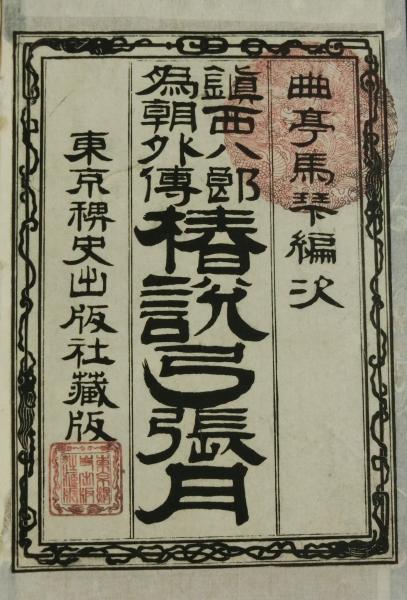 曲亭馬琴編次
鎮西八郎
為朝外傳
椿説弓張月
東京稗史出版社藏版